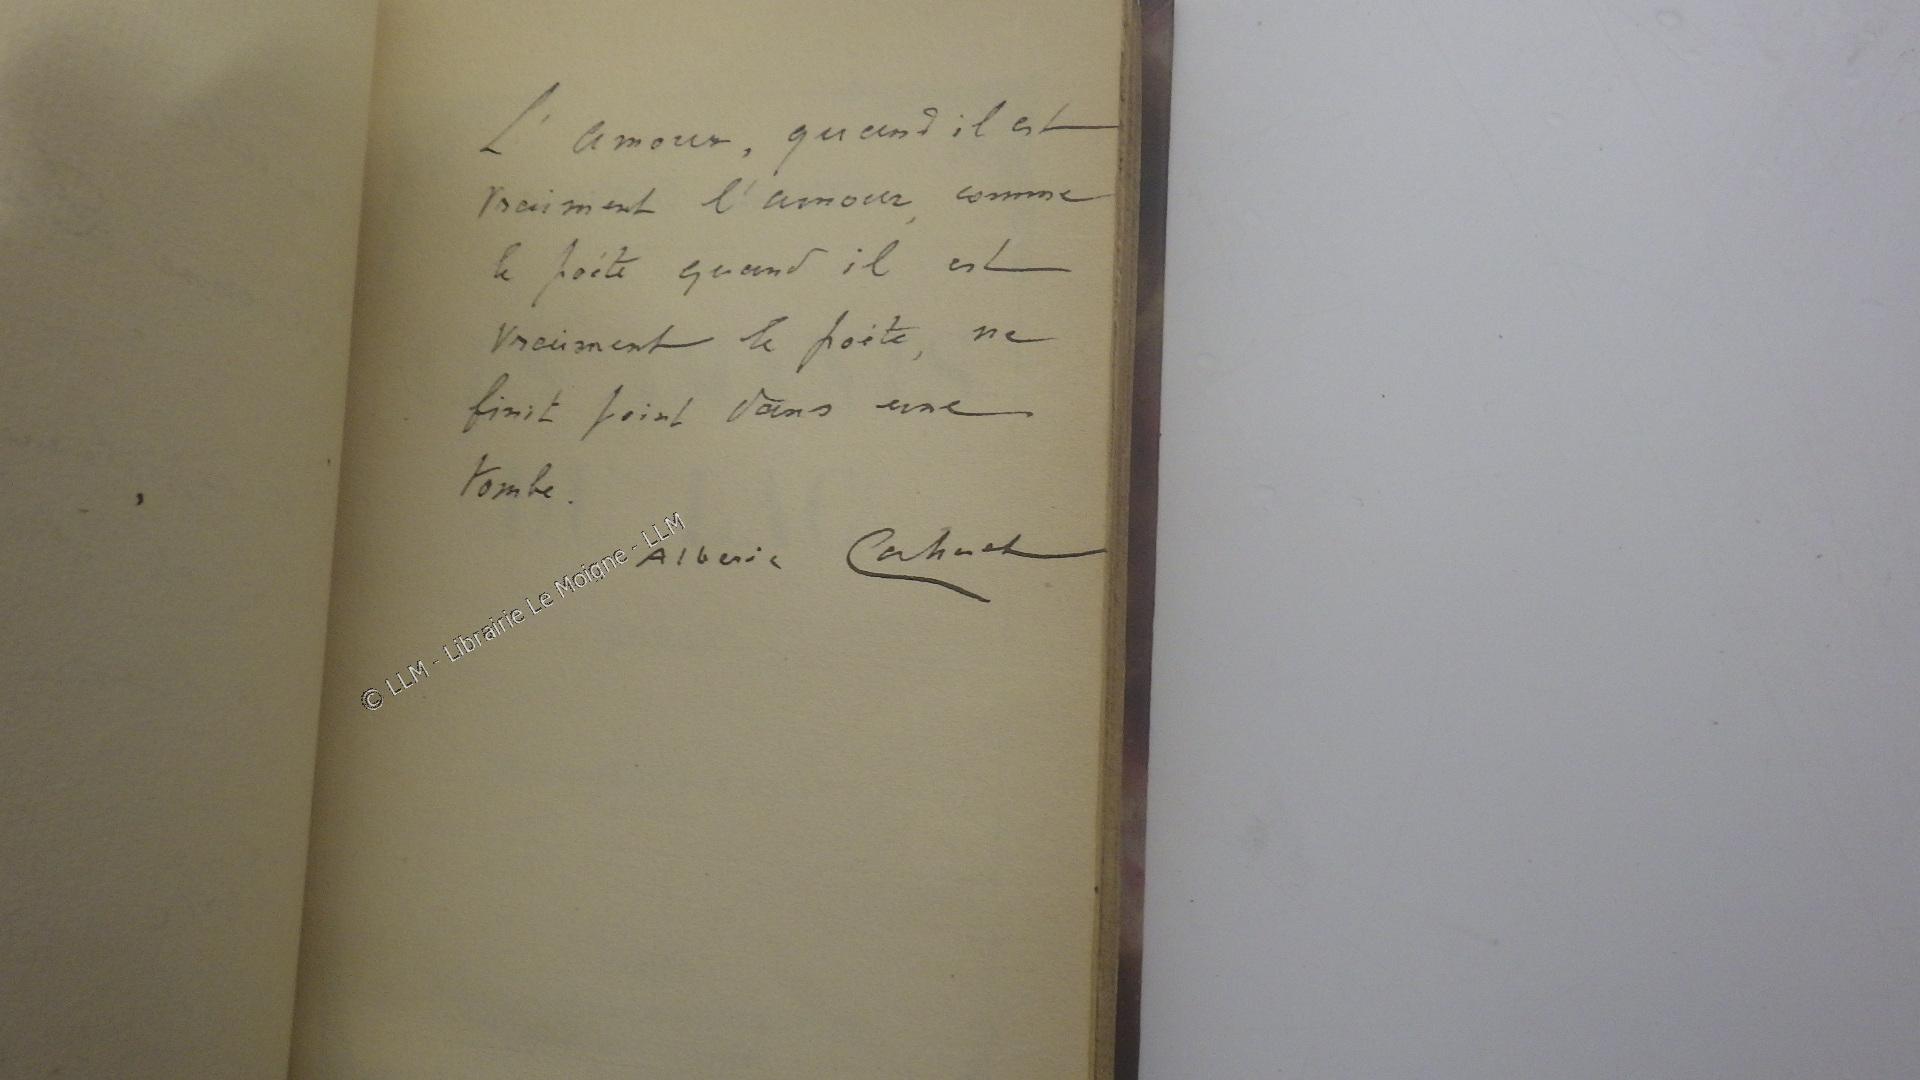 L'amour, quand il est
vraiment l'amour, comme
le poète quand il est
vraiment le poète, ne
finit point dans une
tombe.
Alberic Cahuet
© LLM - Librairie Le Moigne - LLM